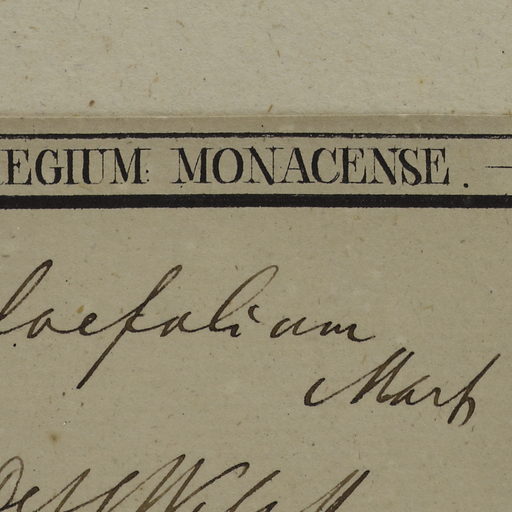 EGIUM MONACENSE.
loefolium
Mart